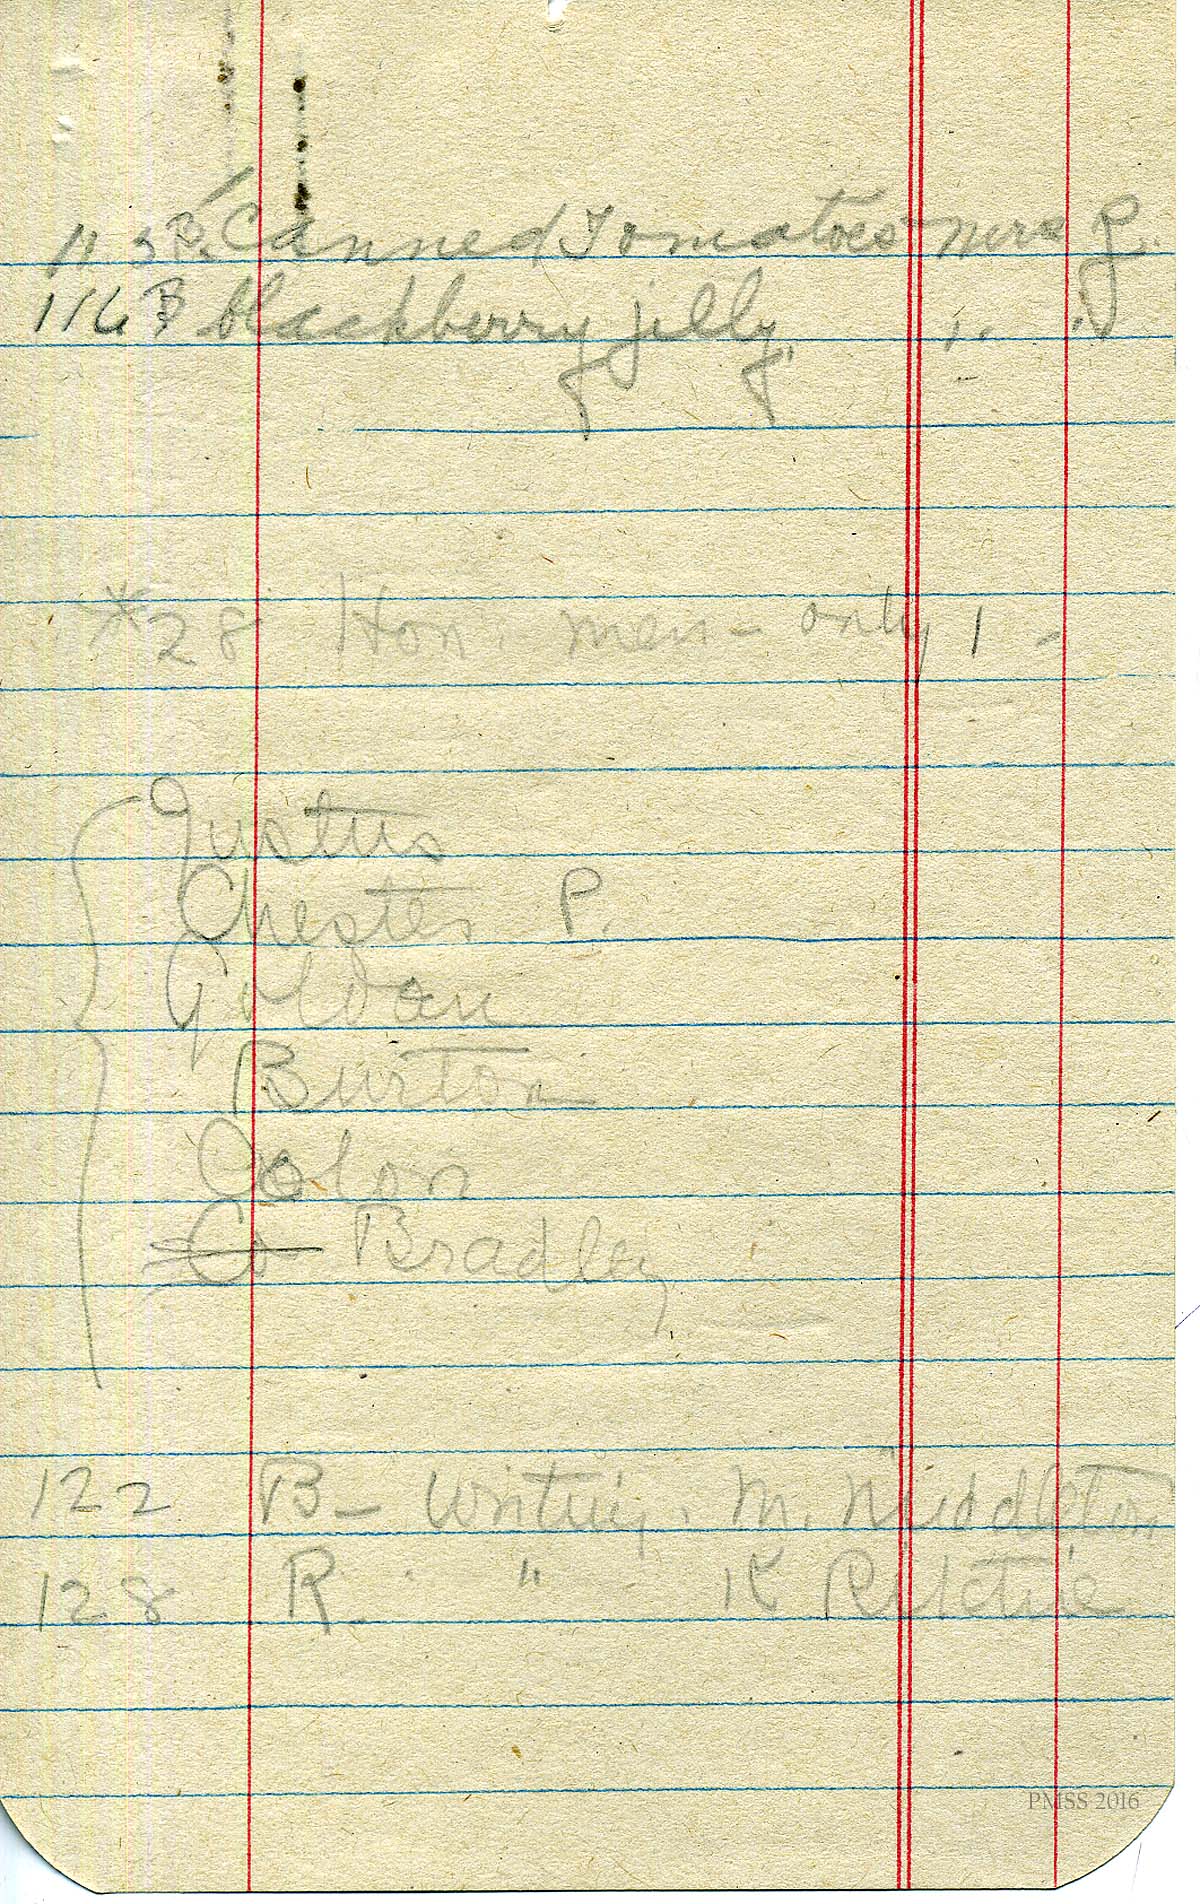 115 R. Canned Tomatoes - Mrs J.
116 B blackberry jelly " "
*28 Hon. men - only 1 -
Justus
Chester P.
Goldan
Burton
Colon
Co Bradley
122 B - Writing. M. Middleton
128 R. " K Ritchie
PMSS 2016